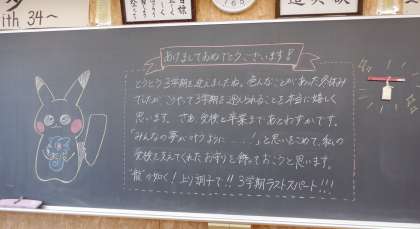 ith 34～
あけましておめでとうございます!
とうとう3学期を迎えましたね。色んなことがあった冬休み
でしたが、こうやって3学期を迎えられることを本当に嬉しく
思います。さあ、受検と卒業まであとわずかです。
「みんなの夢が叶うように……!」と思いをこめて、私の
受検を支えてくれたお守りを飾っておこうと思います。
"龍"の如く!上り調子で!!3学期ラストスパート!!!